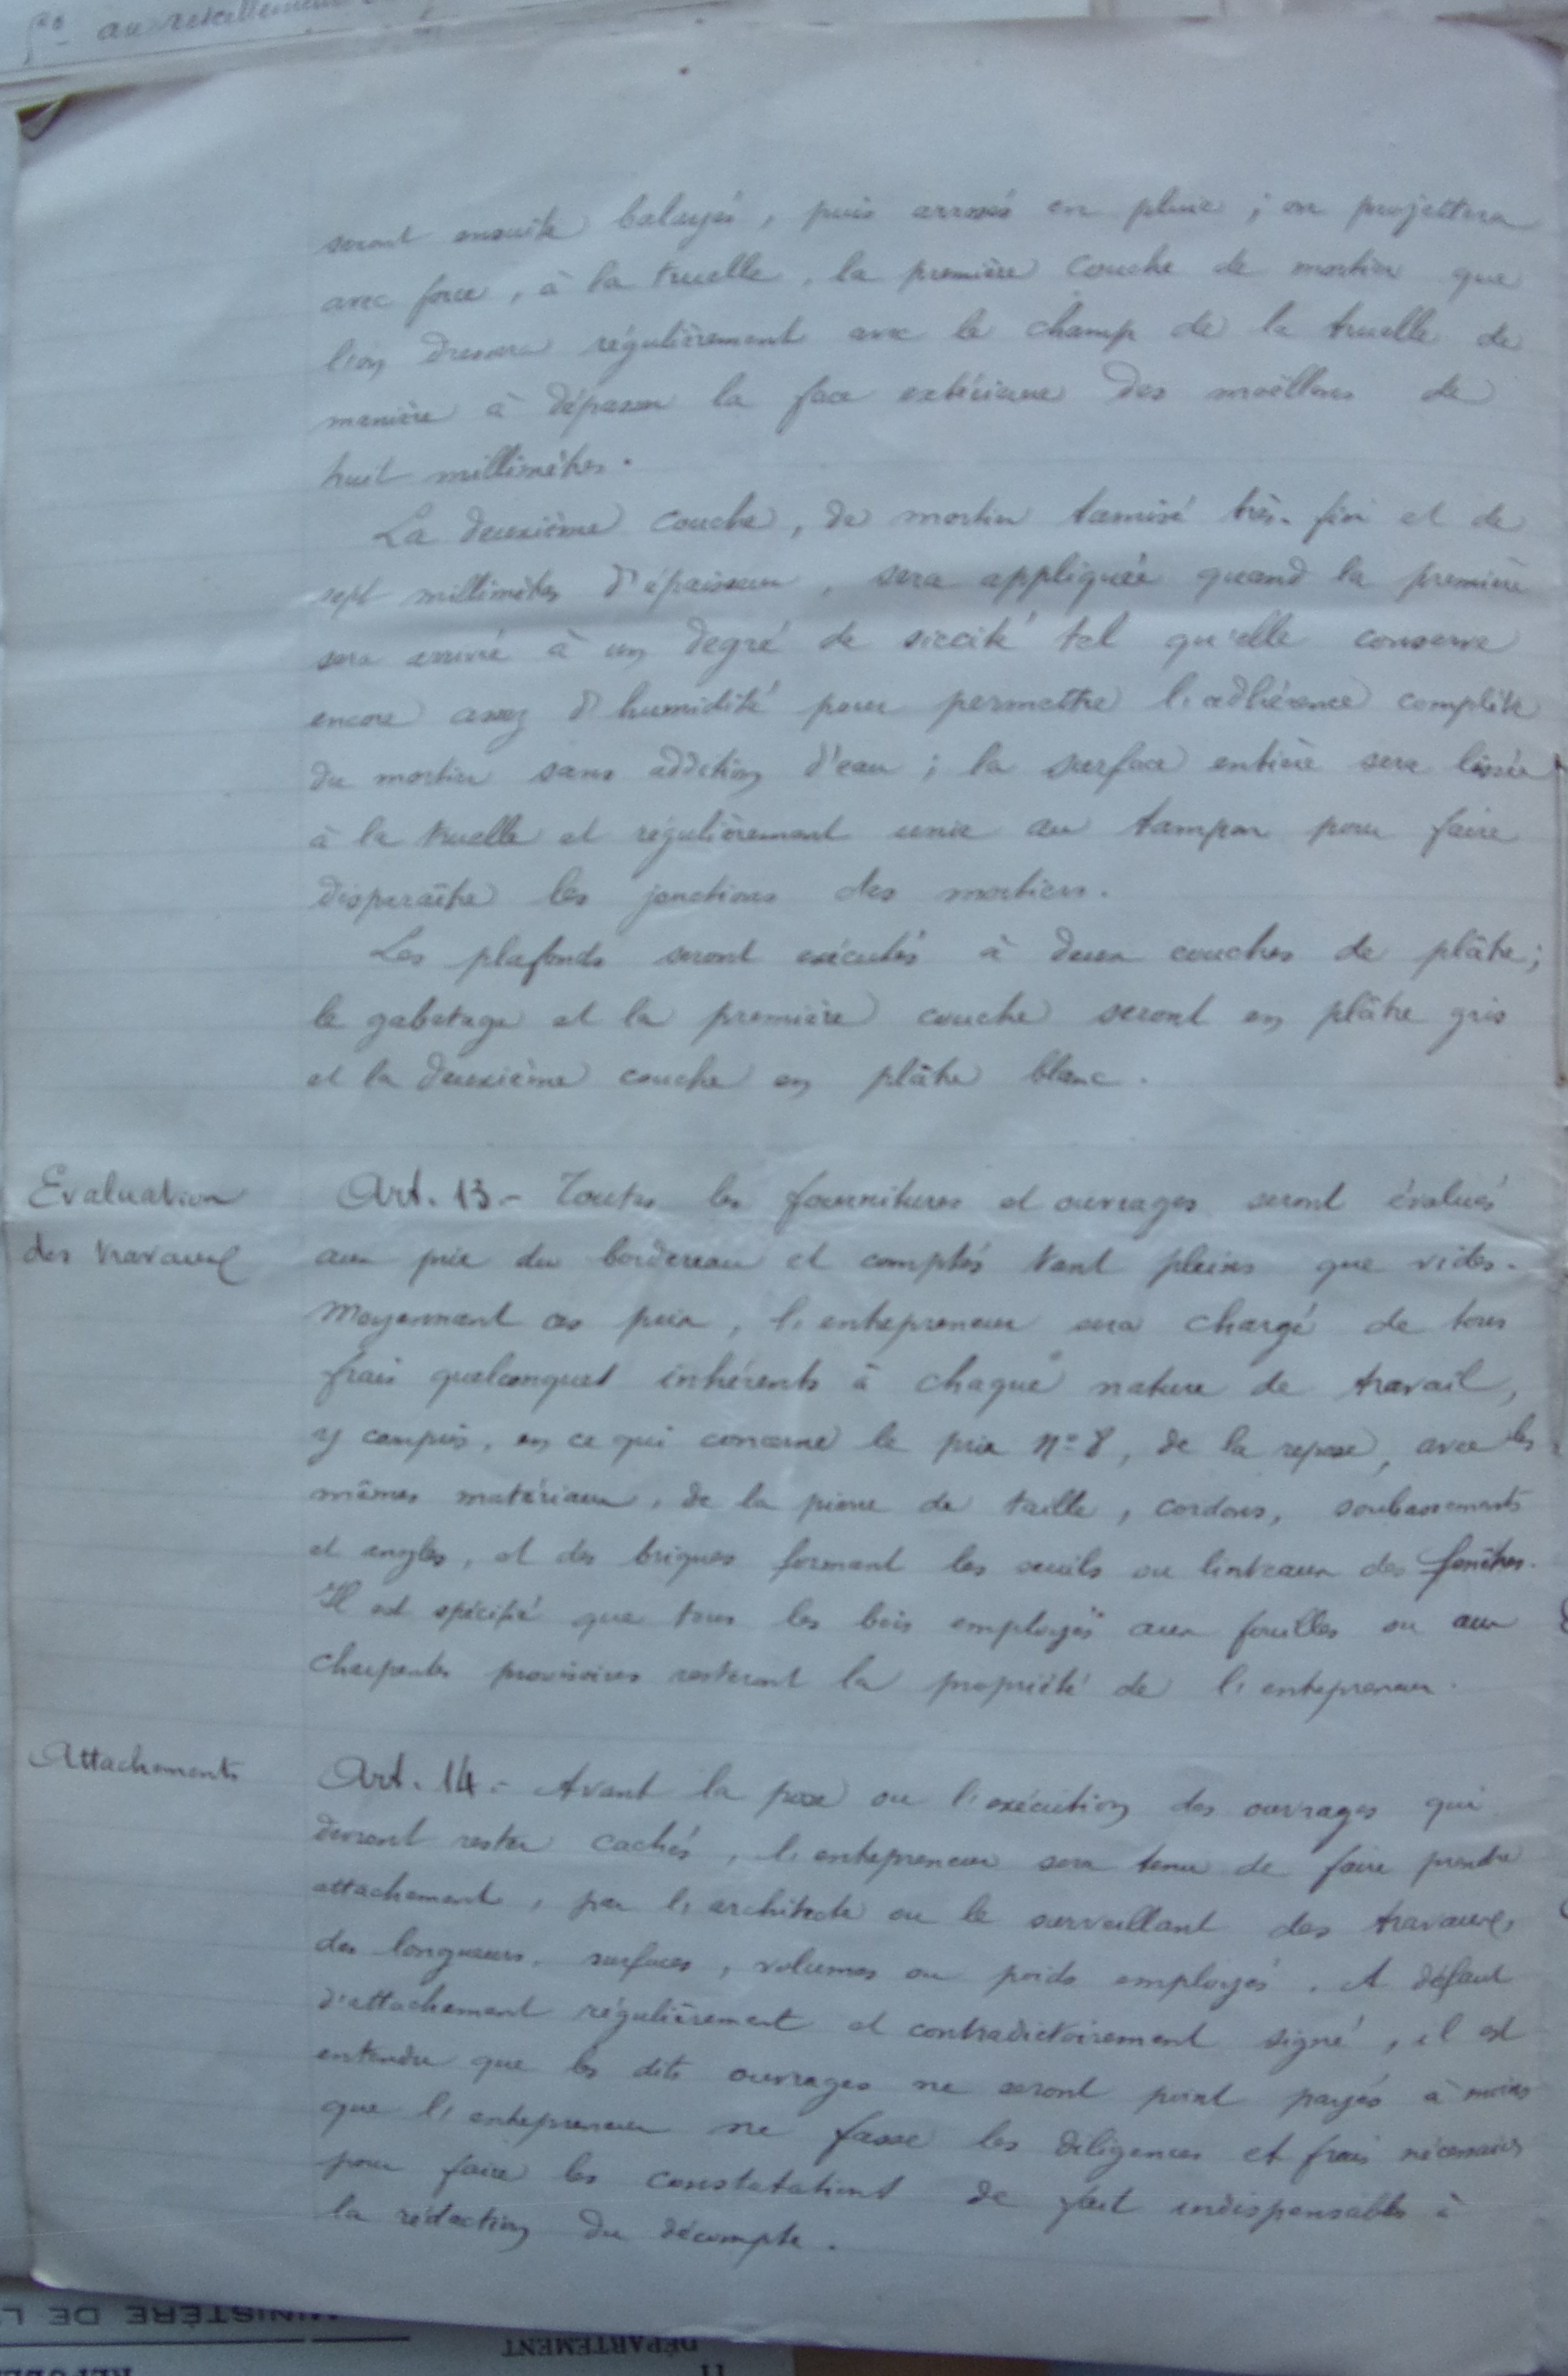 seront ensuite balayés, puis arrosés en pluie ; on projettera
avec force, à la truelle, la première couche de mortier que
l'on dressera régulièrement avec le champ de la truelle de
manière à dépasser la face extérieure des moëllons de
huit millimètres.
La deuxième couche, de mortier tamisé très-fin et de
sept millimètres d'épaisseur, sera appliquée quand la première
sera arrivée à un degré de siccité tel qu'elle conserve
encore assez d'humidité pour permettre l'adhérence complète
du mortier sans addition d'eau ; la surface entière sera lissée
à la truelle et régulièrement unie au tampon pour faire
disparaître les jonctions des mortiers.
Les plafonds seront exécutés à deux couches de plâtre ;
le gobetage et la première couche seront en plâtre gris
et la deuxième couche en plâtre blanc.
Evaluation
des travaux
Art. 13.- Toutes les fournitures et ouvrages seront évalués
aux prix du bordereau et comptés tant pleins que vides.
Moyennant ces prix, l'entrepreneur sera chargé de tous
frais quelconques inhérents à chaque nature de travail,
y compris, en ce qui concerne le prix n° 8, de la repose, avec les
mêmes matériaux, de la pierre de taille, cordons, soubassements
et angles, et des briques formant les seuils ou linteaux des fenêtres.
Il est spécifié que tous les bois employés aux fouilles ou aux
charpentes provisoires resteront la propriété de l'entrepreneur.
Attachements
Art. 14.- Avant la pose ou l'exécution des ouvrages qui
devront rester cachés, l'entrepreneur sera tenu de faire prendre
attachement, par l'architecte ou le surveillant des travaux,
des longueurs, surfaces, volumes ou poids employés. A défaut
d'attachement régulièrement et contradictoirement signé, il est
entendu que les dits ouvrages ne seront point payés à moins
que l'entrepreneur ne fasse les diligences et frais nécessaires
pour faire les constatations de fait indispensables à
la rédaction du décompte.
MINISTÈRE DE L
DÉPARTEMENT